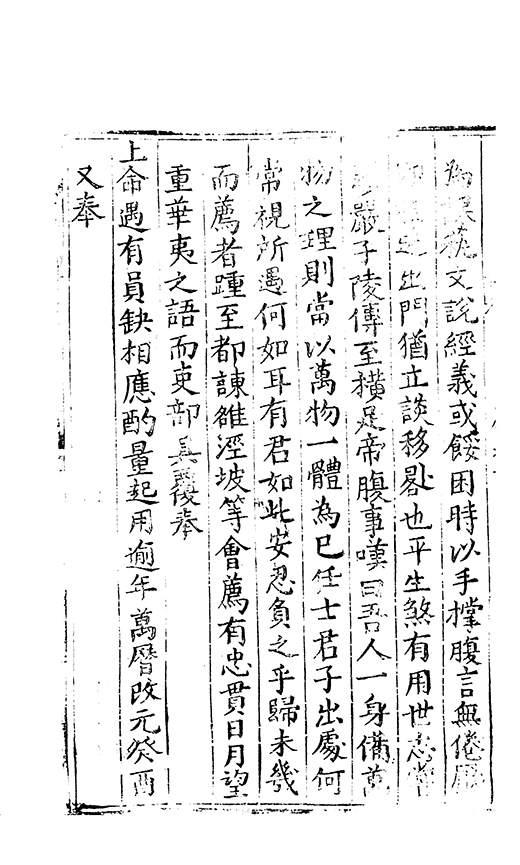 文說經義或餒困時以手撑腹言無倦
出門猶立談移晷也平生煞有用世志嘗
嚴子陵傳至橫足帝腹事嘆曰吾人一身備萬
物之理則當以萬物一體為已任士君子出處何
常視所遇何如耳有君如此安忍負之乎歸未幾
而薦者踵至都諫雒涇坡等會薦有忠貫日月望
重華夷之語而吏部具覆奉
上命遇有員缺相應酌量起用逾年萬曆改元癸酉
又奉